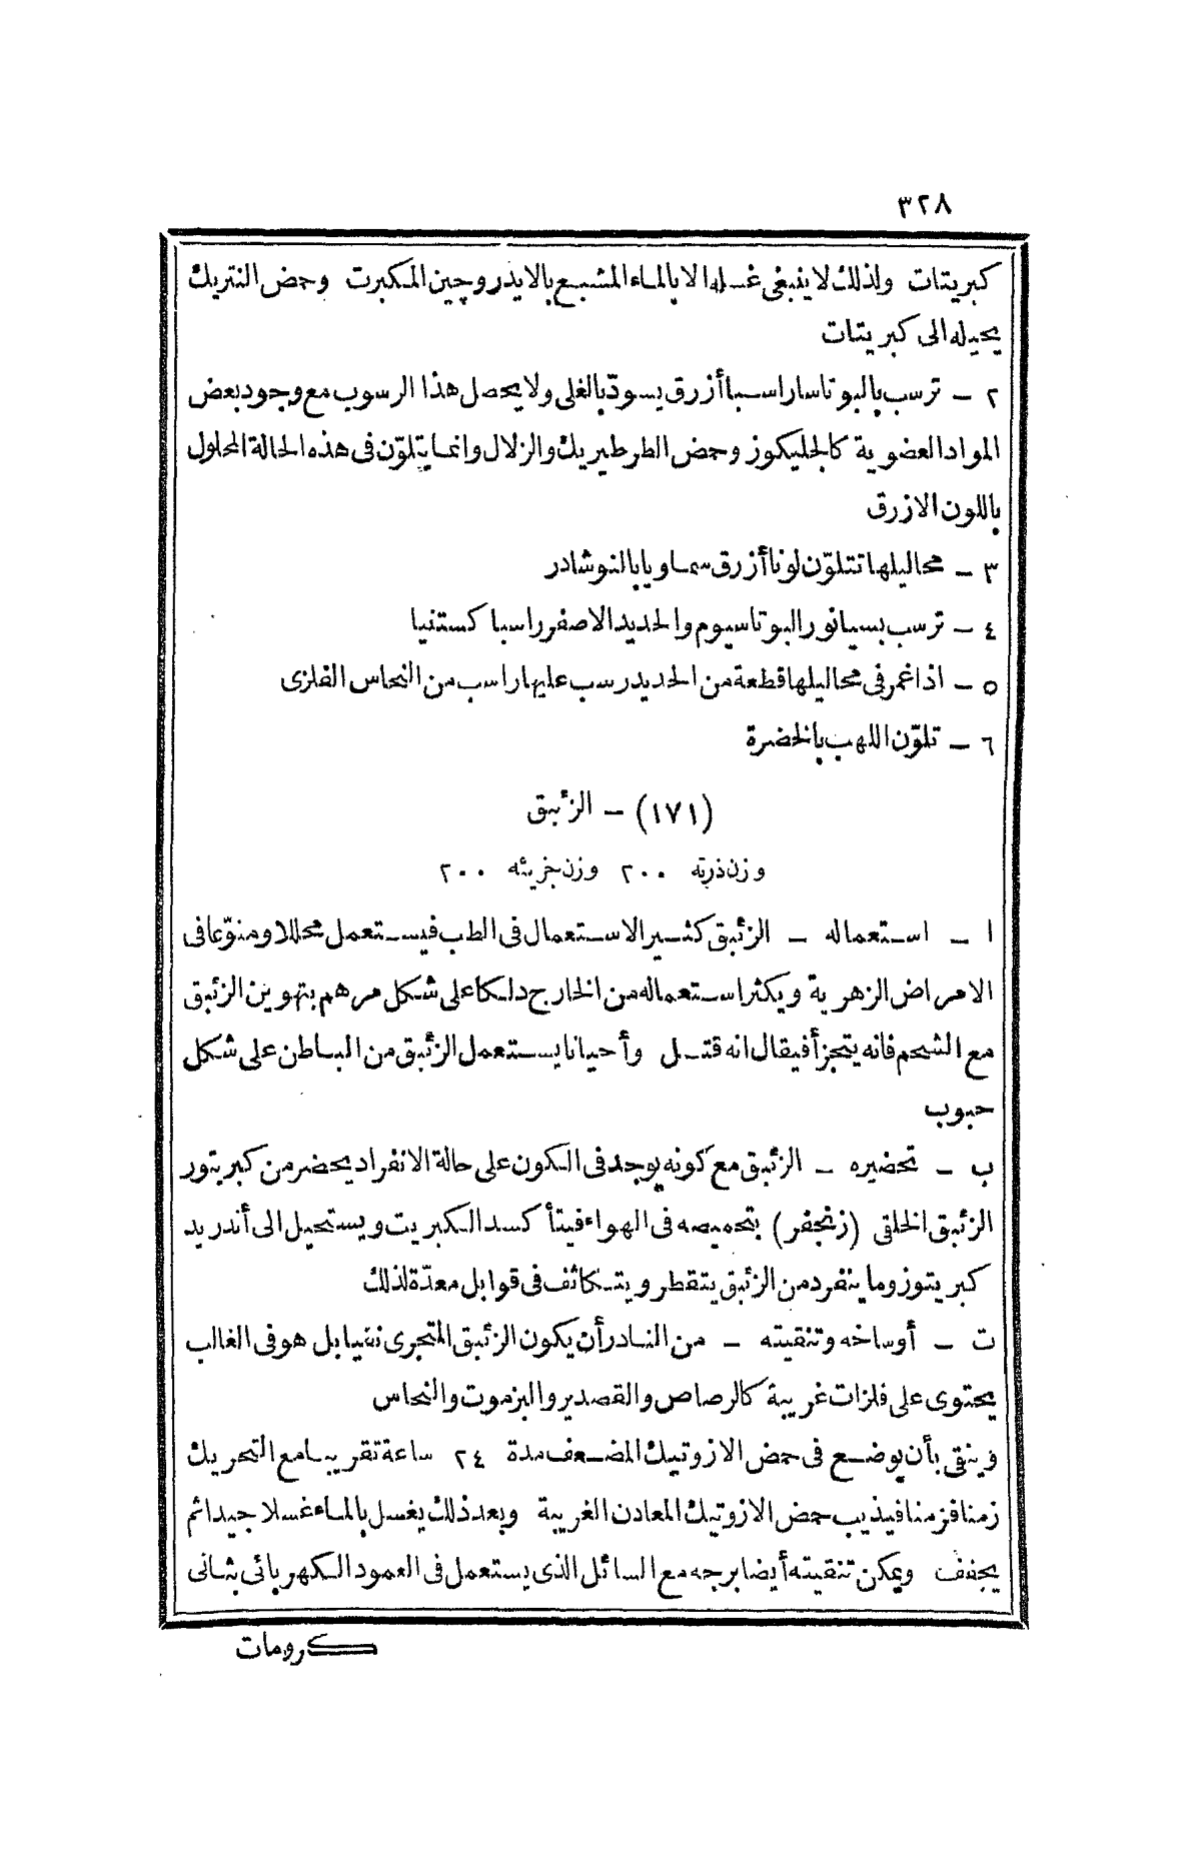 ٣٢٨
كبريتات ولذلك لا ينبغى غسله الا بالماء المشبع بالايدروچين المكبرت وحمض النتريك
يحيله الى كبريتات
٢ ـ ترسب بالبوتاسا راسبا أزرق يسودّ بالغلى ولا يحصل هذا الرسوب مع وجود بعض
المواد العضوية كالجليكوز وحمض الطرطيريك والزلال وانما يتلوّن فى هذه الحالة المحلول
باللون الازرق
٣ ـ محاليلها تتلوّن لونا أزرق سماويا بالنوشادر
٤ ـ ترسب بسيانور البوتاسيوم والحديد الاصفر راسبا كستنيا
٥ ـ اذا غمر فى محاليلها قطعة من الحديد رسب عليها راسب من النحاس الفلزى
٦ ـ تلوّن اللهب بالخضرة
(١٧١) ـ الزئبق
وزن ذرته ٢٠٠ وزن جزيئه ٢٠٠
ا ـ استعماله ـ الزئبق كثير الاستعمال فى الطب فيستعمل محللا ومنوّعا فى
الامراض الزهرية ويكثر استعماله من الخارج دلكا على شكل مرهم بتهوين الزئبق
مع الشحم فانه يتجزأ فيقال انه قتل وأحيانا يستعمل الزئبق من الباطن على شكل
حبوب
ب ـ تحضيره ـ الزئبق مع كونه يوجد فى الكون على حالة الانفراد يحضر من كبريتور
الزئبق الخلقى (زنجفر) بتحميصه فى الهواء فيتأكسد الكبريت ويستحيل الى أندريد
كبريتوز وما ينفرد من الزئبق يتقطر ويتكاثف فى قوابل معدّة لذلك
ت ـ أوساخه وتنقيته ـ من النادر أن يكون الزئبق المتجرى نقيا بل هو فى الغالب
يحتوى على فلزات غريبة كالرصاص والقصدير والبزموت والنحاس
وينقى بأن يوضع فى حمض الازوتيك المضعف مدة ٢٤ ساعة تقريبا مع التحريك
زمنا فزمنا فيذيب حمض الازوتيك المعادن الغريبة وبعد ذلك يغسل بالماء غسلا جيدا ثم
يجفف ويمكن تنقيته أيضا برجه مع السائل الذى يستعمل فى العمود الكهربائى بثانى
كرومات